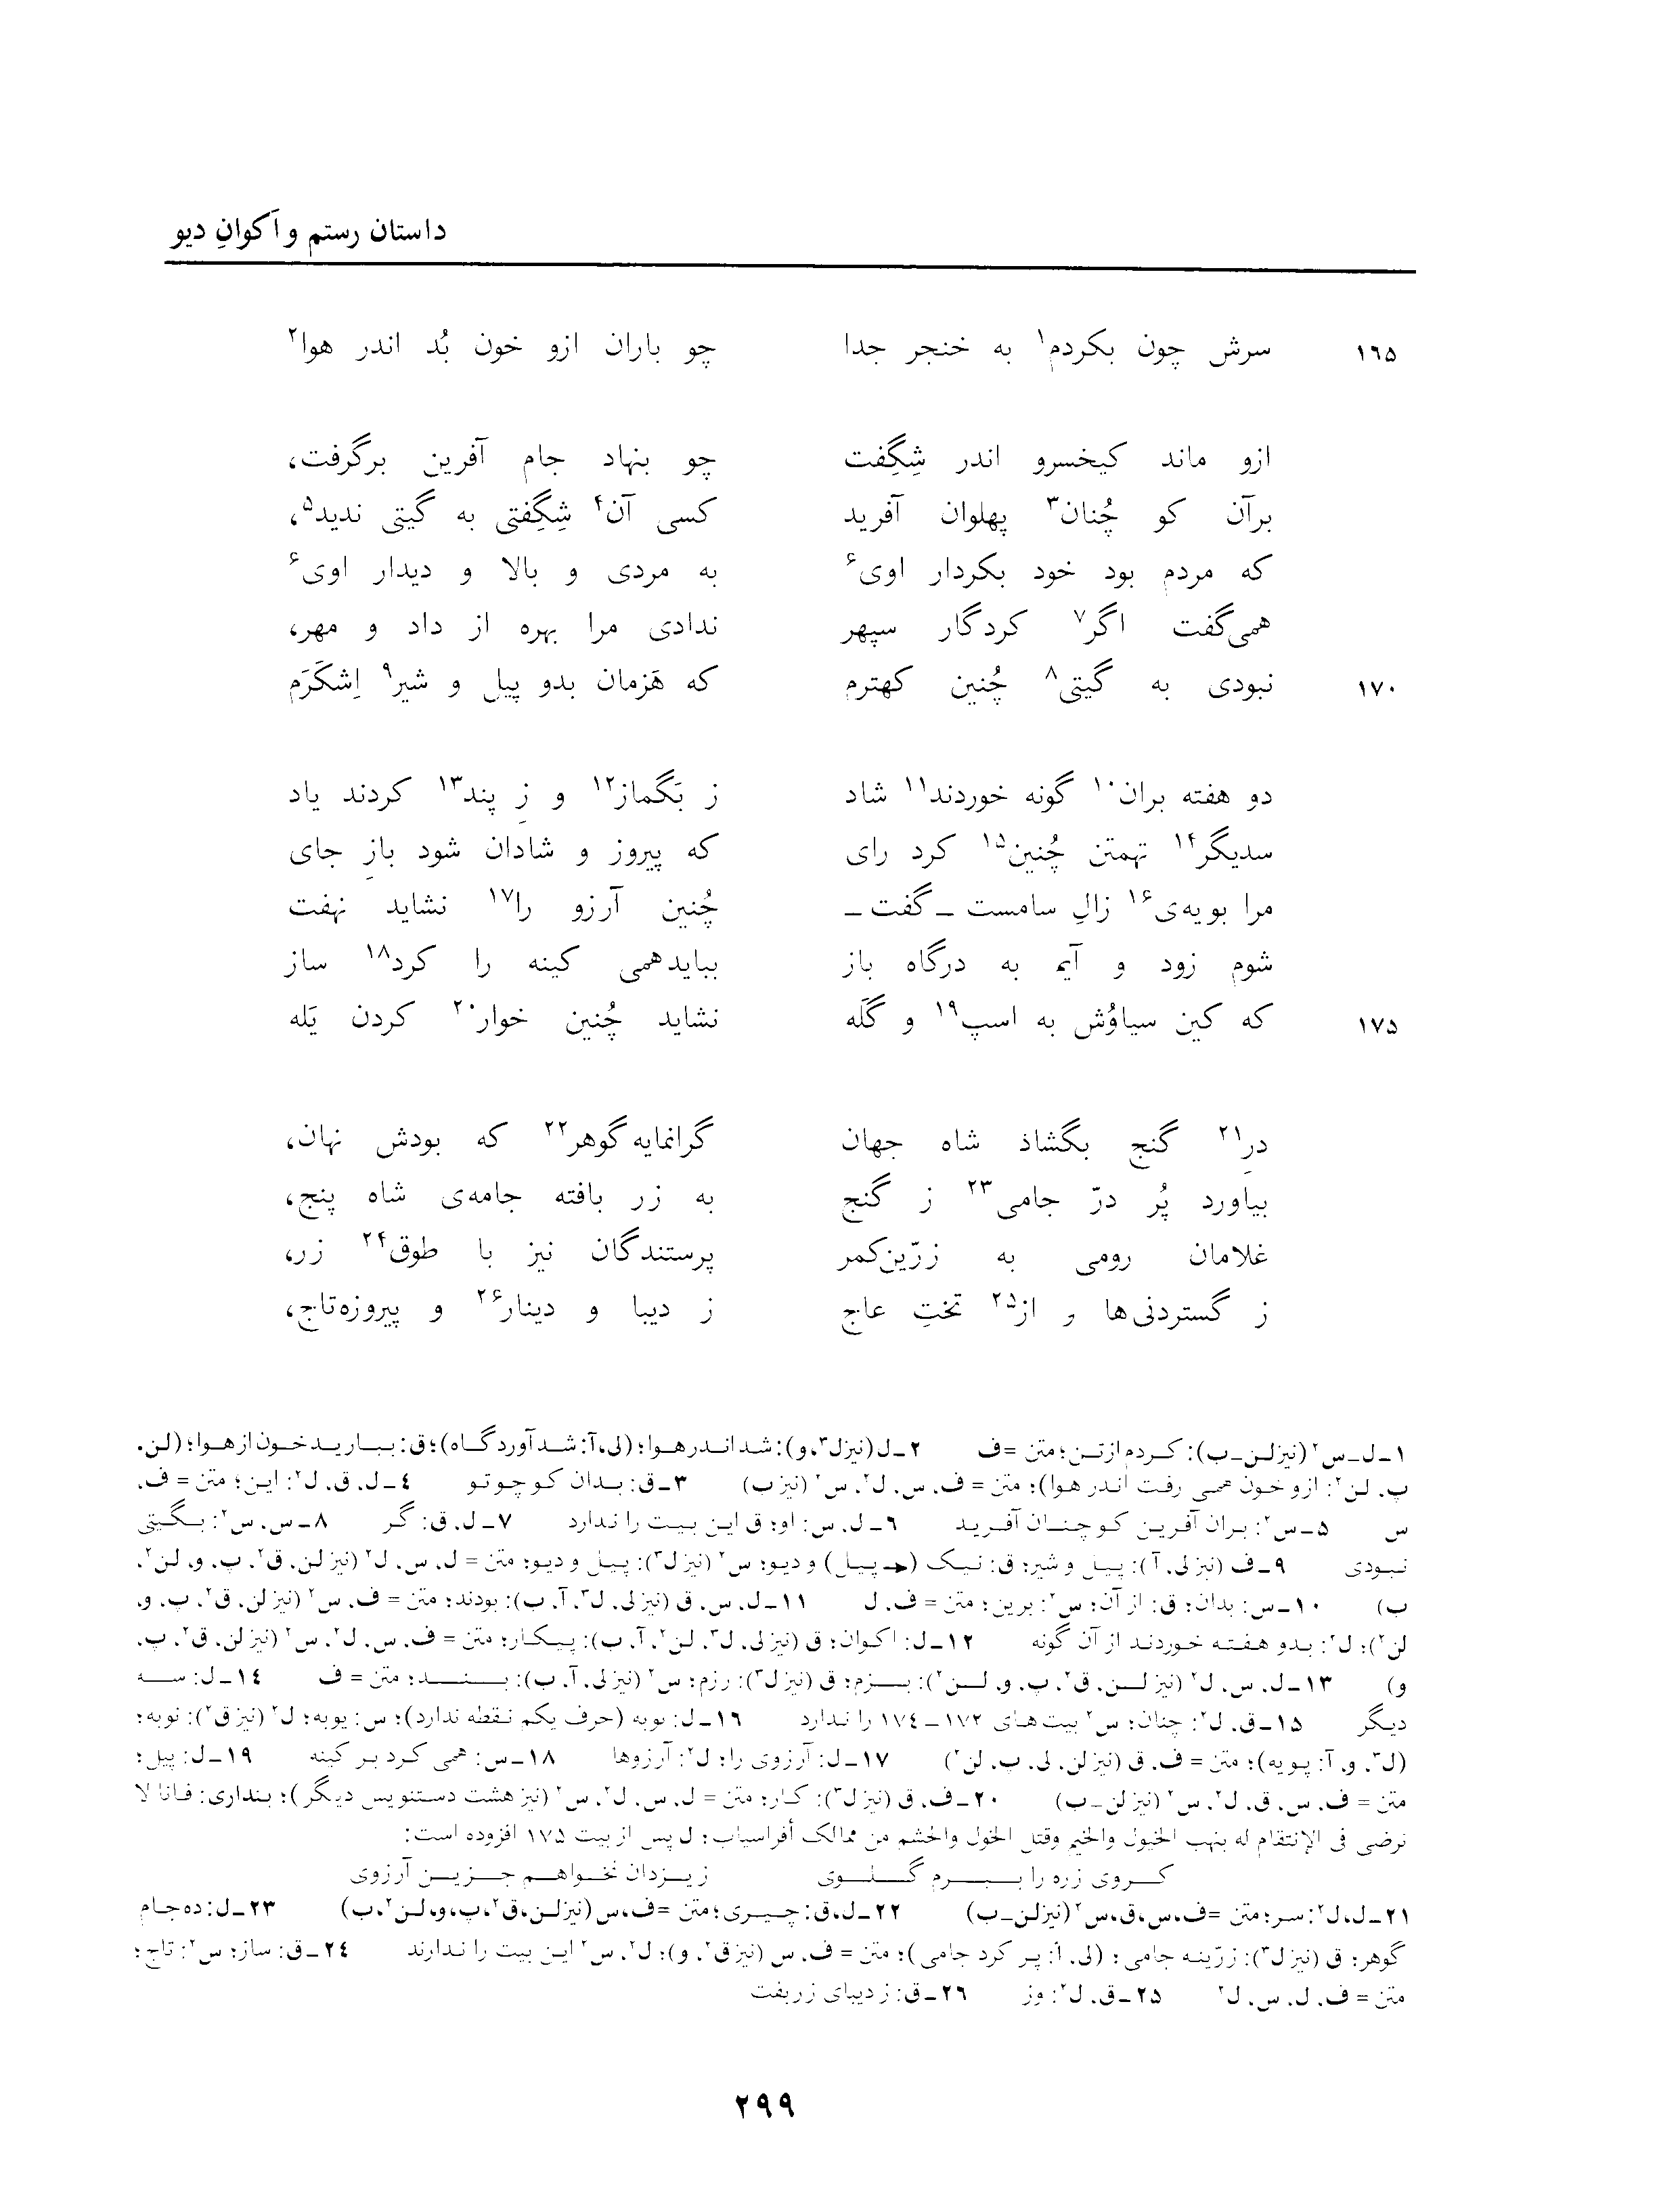 داستان رستم و اَکوانِ دیو
۱۶۵ سرش چون بکردم۱ به خنجر جدا چو باران ازو خون بُد اندر هوا۲
ازو ماند کیخسرو اندر شِگِفت چو بنهاد جام آفرین برگرفت،
برآن کو چُنان۳ پهلوان آفرید کسی آن۴ شِگِفتی به گیتی ندید۵،
که مردم بود خود بکردار اوی۶ به مردی و بالا و دیدار اوی۶
همی‌گفت اگر۷ کردگار سپهر ندادی مرا بهره از داد و مهر،
۱۷۰ نبودی به گیتی۸ چُنین کهترم که هَزمان بدو پیل و شیر۹ اِشکَرَم
دو هفته بران۱۰ گونه خوردند۱۱ شاد ز بَگماز۱۲ و زِ پند۱۳ کردند یاد
سدیگر۱۴ تهمتن چُنین۱۵ کرد رای که پیروز و شادان شود بازِ جای
مرا بویه‌ی۱۶ زالِ سامست ـ گفت ـ چُنین آرزو را۱۷ نشاید نهفت
شوم زود و آیم به درگاه باز بباید همی کینه را کرد۱۸ ساز
۱۷۵ که کین سیاوُش به اسپ۱۹ و گَله نشاید چُنین خوار۲۰ کردن یَله
درِ۲۱ گنج بگشاذ شاه جهان گرانمایه گوهر۲۲ که بودش نهان،
بیاورد پُر درّ جامی۲۳ ز گنج به زر بافته جامه‌ی شاه پنج،
غلامان رومی به زرّین‌کمر پرستندگان نیز با طوق۲۴ زر،
ز گستردنی‌ها و از۲۵ تختِ عاج ز دیبا و دینار۲۶ و پیروزه‌تاج،
۱ـ ل ـ س۲ (نیز لن ـ ب): کردم از تن؛ متن = ف ۲ـ ل (نیز ل۳، و): شد اندر هوا؛ (لی، آ: شد آوردگاه)؛ ق: ببارید خون از هوا؛ (لن،
پ، لن۲: ازو خون همی رفت اندر هوا)؛ متن = ف، س، ل۲، س۲ (نیز ب) ۳ـ ق: بدان کو چو تو ۴ـ ل، ق، ل۲: این؛ متن = ف،
س ۵ـ س۲: بران آفرین کو چنان آفرید ۶ـ ل، س: او؛ ق این بیت را ندارد ۷ـ ل، ق: گر ۸ـ س، س۲: بگیتی
نبودی ۹ـ ف (نیز لی، آ): پیل و شیر؛ ق: نیک (← پیل) و دیو؛ س۲ (نیز ل۳): پیل و دیو؛ متن = ل، س، ل۲ (نیز لن، ق۲، پ، و، لن۲،
ب) ۱۰ـ س: بدان؛ ق: از آن؛ س۲: برین؛ متن = ف، ل ۱۱ـ ل، س، ق (نیز لی، ل۳، آ، ب): بودند؛ متن = ف، س۲ (نیز لن، ق۲، پ، و،
لن۲)؛ ل۲: بدو هفته خوردند از آن گونه ۱۲ـ ل: اکوان؛ ق (نیز لی، ل۳، لن۲، آ، ب): پیکار؛ متن = ف، س، ل۲، س۲ (نیز لن، ق۲، پ،
و) ۱۳ـ ل، س، ل۲ (نیز لن، ق۲، پ، و، لن۲): بزم؛ ق (نیز ل۳): رزم؛ س۲ (نیز لی، آ، ب): بند؛ متن = ف ۱۴ـ ل: سه
دیگر ۱۵ـ ق، ل۲: چنان؛ س۲ بیت‌های ۱۷۲ـ۱۷۴ را ندارد ۱۶ـ ل: بوبه (حرف یکم نقطه ندارد)؛ س: یوبه؛ ل۲ (نیز ق۲): نوبه؛
(ل۳، و، آ: پویه)؛ متن = ف، ق (نیز لن، لی، پ، لن۲) ۱۷ـ ل: آرزوی را؛ ل۲: آرزوها ۱۸ـ س: همی کرد بر کینه ۱۹ـ ل: پیل؛
متن = ف، س، ق، ل۲، س۲ (نیز لن ـ ب) ۲۰ـ ف، ق (نیز ل۳): کار؛ متن = ل، س، ل۲، س۲ (نیز هشت دستنویس دیگر)؛ بنداری: فانا لا
نرضی فی الإنتقام له بنهب الخیول والخیم وقتل الخول والحشم من ممالک أفراسیاب؛ ل پس از بیت ۱۷۵ افزوده است:
کروی زره را ببرم گلوی ز یزدان نخواهم جزین آرزوی
۲۱ـ ل، ل۲: سر؛ متن = ف، س، ق، س۲ (نیز لن ـ ب) ۲۲ـ ل، ق: چیری؛ متن = ف، س (نیز لن، ق۲، پ، و، لن۲، ب) ۲۳ـ ل: ده جام
گوهر؛ ق (نیز ل۳): زرّینه جامی؛ (لی، آ: پر کرد جامی)؛ متن = ف، س (نیز ق۲، و)؛ ل۲، س۲ این بیت را ندارند ۲۴ـ ق: ساز؛ س۲: تاج؛
متن = ف، ل، س، ل۲ ۲۵ـ ق، ل۲: وز ۲۶ـ ق: ز دیبای زربفت
۲۹۹